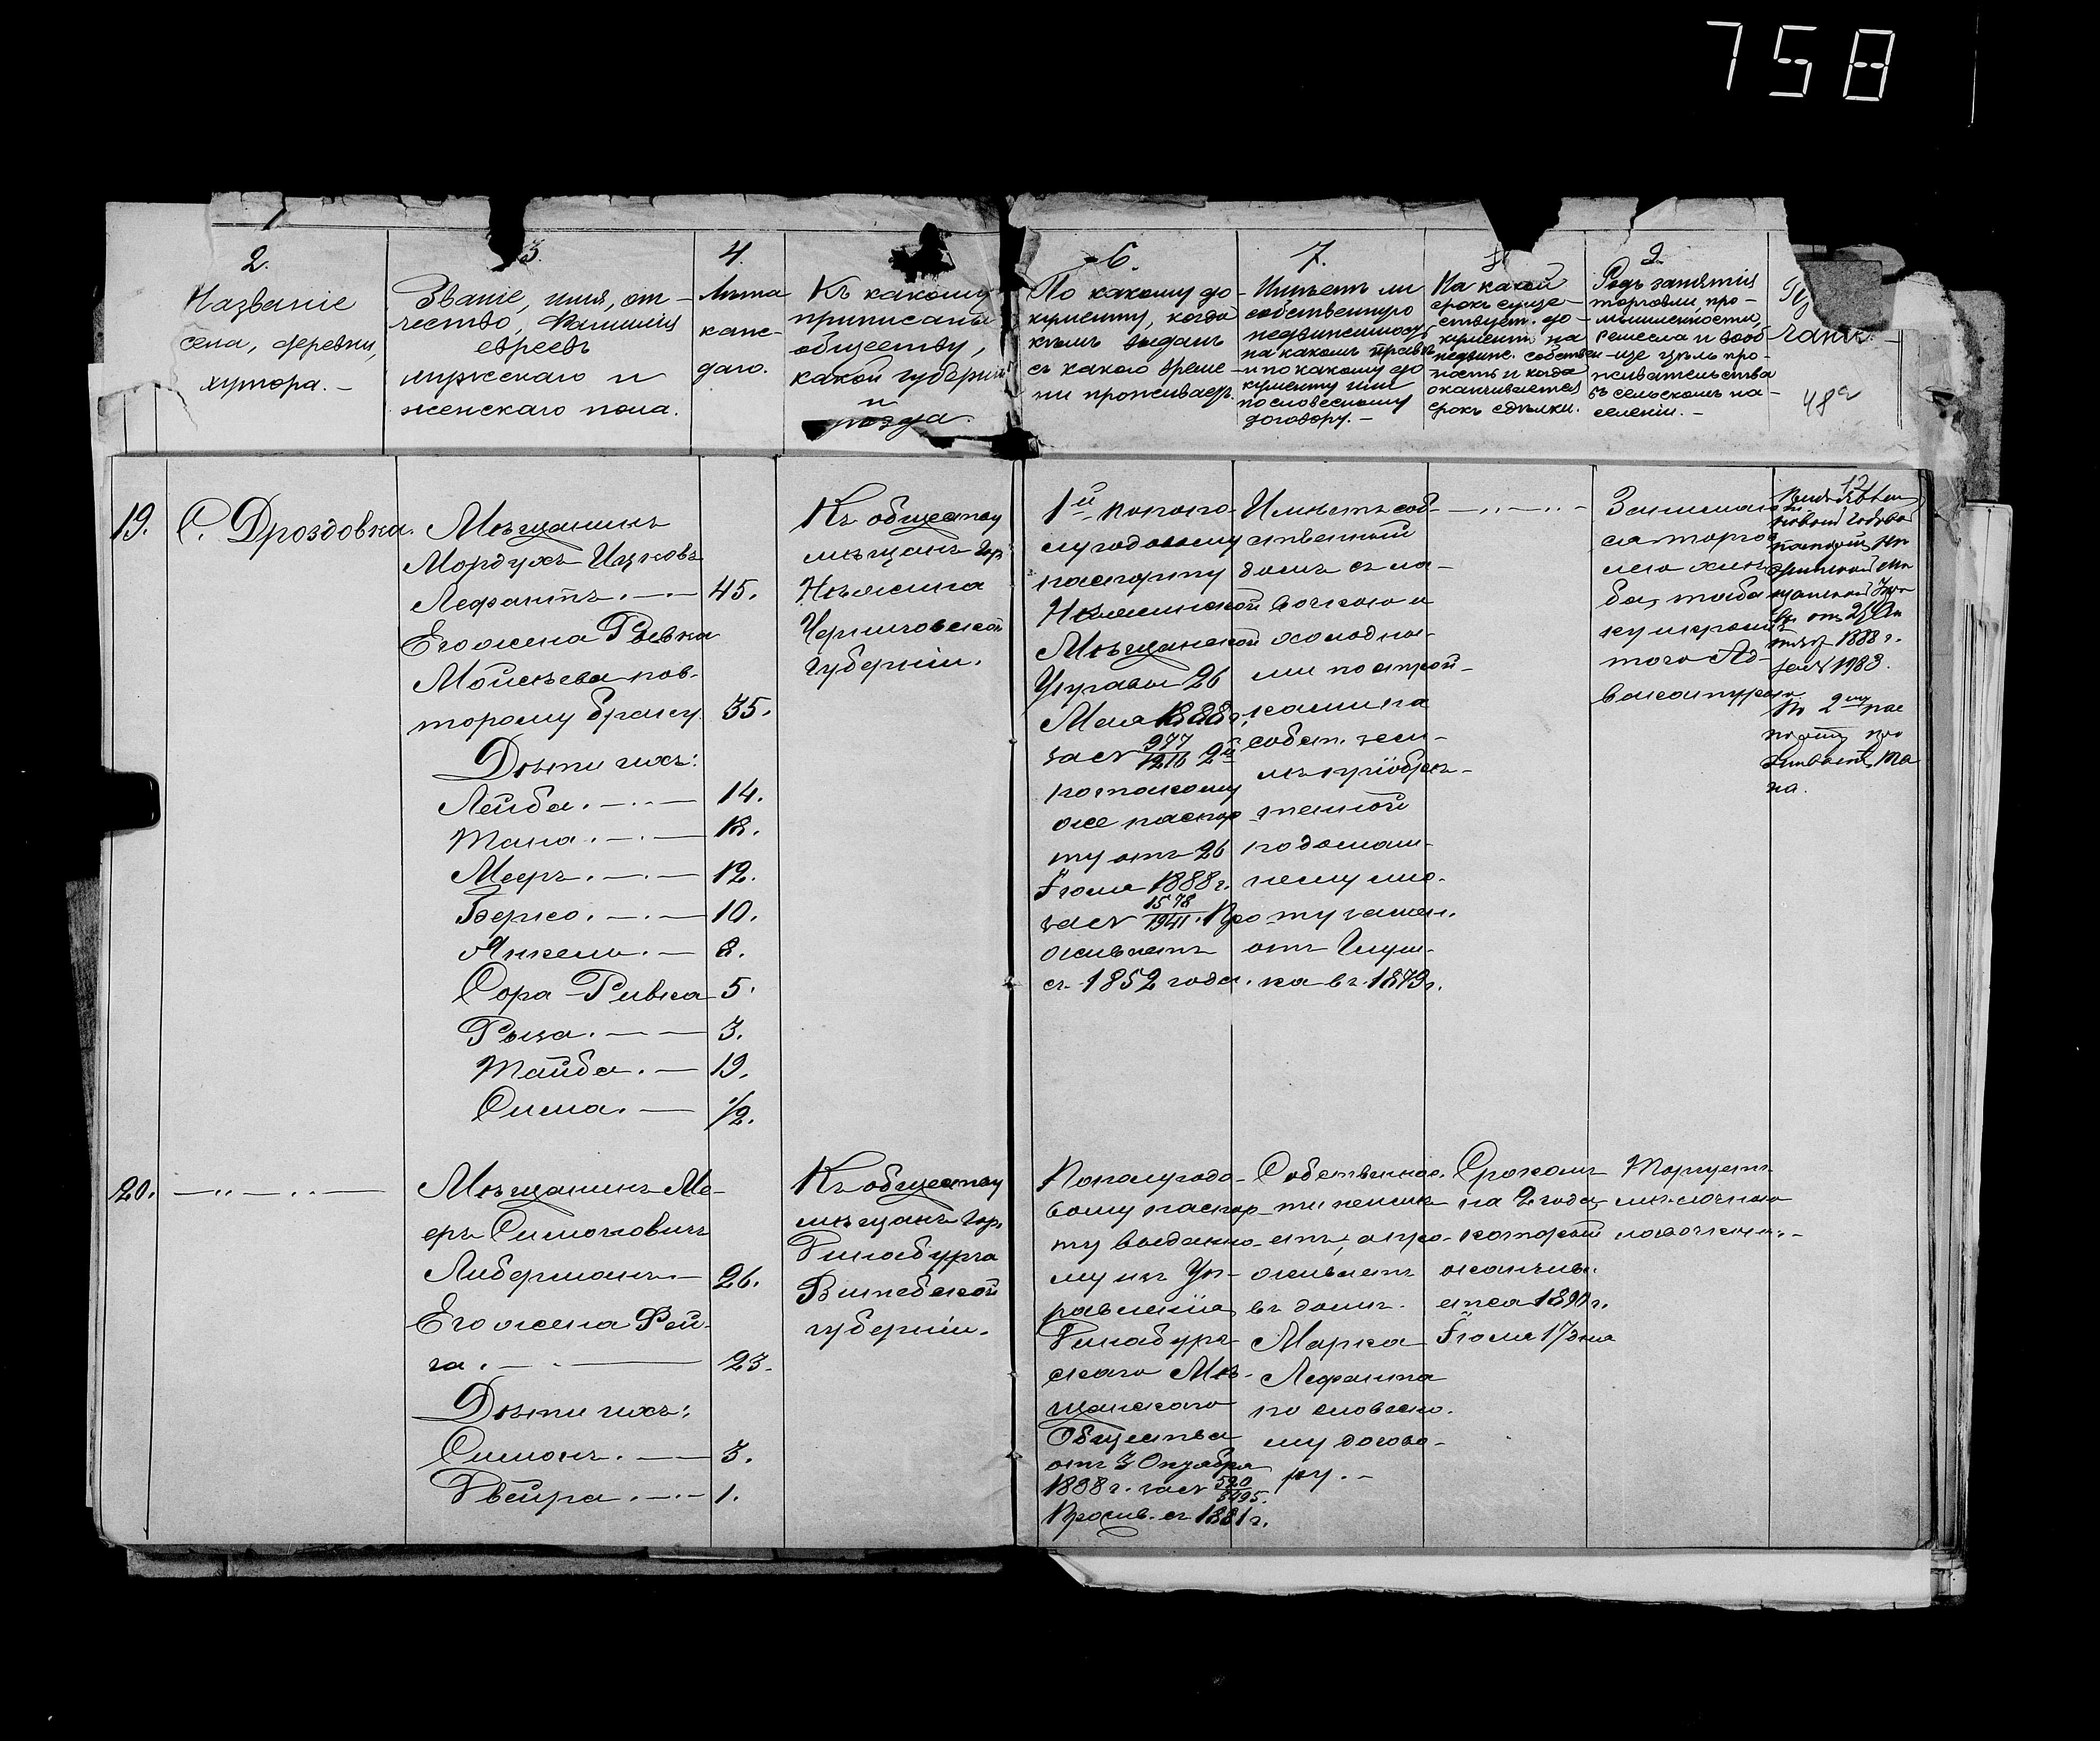 758
2.
Названіе
села, деревни,
хутора. –
3.
Званіе, имя, от-
чество, Фамилія
евреевъ
мужскаго и
женскаго пола.
4.
Лѣта
каж-
даго.
Къ какому
приписаны
обществу,
какой губерніи
и
уѣзда.
6.
По какому до-
кументу, когда
кѣмъ выданъ
съ какого време-
ни проживаетъ.
7.
Имѣетъ ли
собственную
недвижимость
на какомъ правѣ
и по какому до
кументу или
по словесному
договору. –
На какой
срокъ суще-
ствует. до-
кументъ на
недвиж. собствен-
ность и когда
оканчивается
срокъ сдѣлки.
9.
Родъ занятія
торговли, про-
мышленности,
ремесла и вооб-
ще цѣль про-
живательства
въ сельскомъ на-
селеніи. –
48
19.
С. Дроздовка.
Мѣщанинъ
Мордухъ Ицковъ
Лефантъ. 45.
Его жена Ривка
Мойсѣева по в-
торому браку 35.
Дѣти ихъ:
Лейба. 14.
Тана.
Мееръ. 12.
Берко. 10.
Янкель. 8.
Сора-Ривка 5.
Рыва. 3.
Тайба. 19.
Сима. 1/2.
Къ обществу
мѣщанъ гор.
Нѣжина
Черниговской
губерніи.
1й по полу-
му годовому
паспорту
Нѣжинской
Мѣщанской
Управы 26
Мая 1888 г.
за № 977/1216 2й
по такому
же паспор-
ту отъ 26
Іюля 1888 г.
за № 1578/1941. Про-
живаетъ
съ 1852 года.
Имѣетъ соб-
ственный
домъ съ ла-
вочкою и
холодны-
ми построй-
ками на
собст. зем-
лѣ пріобрѣ-
тенной
по домаш-
нему
отъ
ка въ 1879 г.
Занимает-
ся торгов-
лею хлѣ-
ба, таба
ку и кромѣ
того
12
новый годовой
паспортъ
1888 г.
за № 1983.
По 2му пас
порту про
живаетъ Та
на.
20.
Мѣщанинъ Ме-
еръ Симоновичъ
Либерманъ 26.
Его жена Фей-
га. 23.
Дѣти ихъ:
Симонъ. 3.
Двейра. 1.
Къ обществу
мѣщанъ гор.
Динабурга
Витебской
губерніи.
По полугодо-
вому паспор-
ту выданно-
му изъ Уп-
равленія
Динабург-
скаго Мѣ-
щанскаго
Общества
отъ 3 Октября
1888 г. за №
Прожив. съ 1881 г.
Собственнос-
ти не имѣ-
етъ, а про-
живаетъ
въ домѣ
Марка
Лефанта
по словесно-
му догово-
ру. –
Срокомъ
на 2 года,
который
окончива-
ется 1890 г.
Іюля 17 дня
Торгуетъ
мѣлочною
лавочкою. –